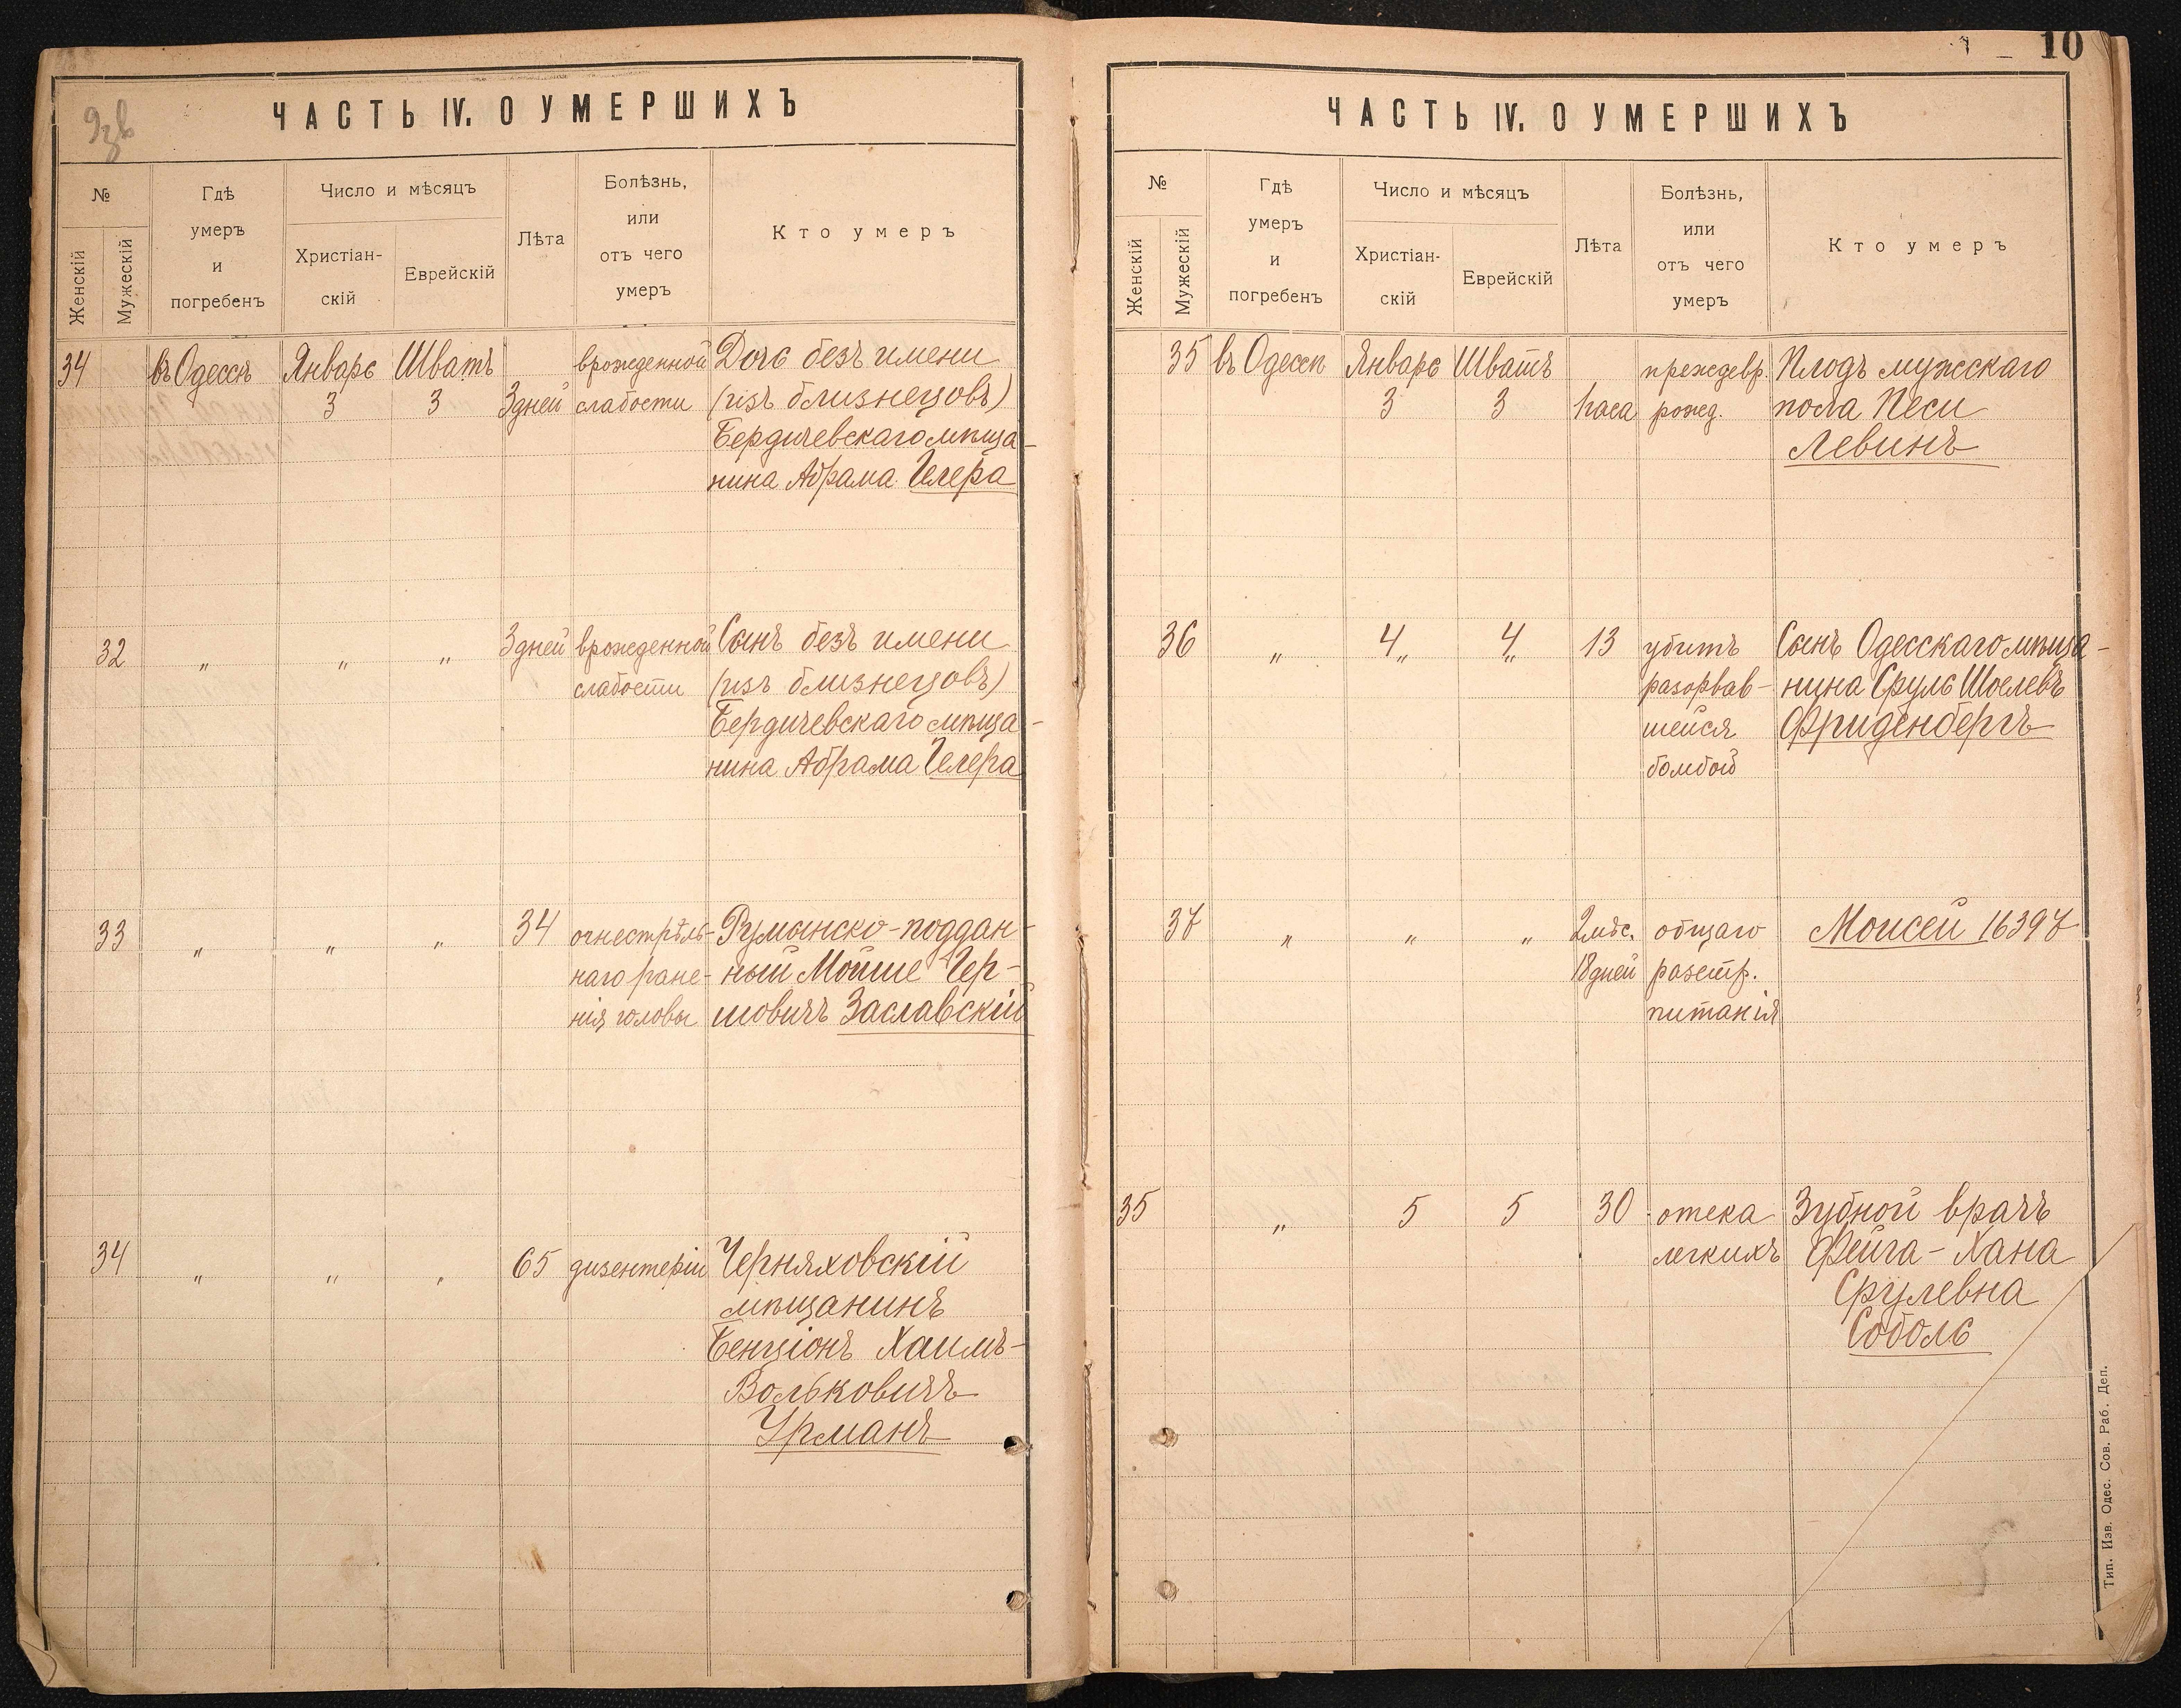 10
ЧАСТЬ IV. О УМЕРШИХЪ
№
Женскій
Мужескій
Гдѣ
умеръ
и
погребенъ
Число и мѣсяцъ
Христіан-
скій
Еврейскій
Лѣта
Болѣзнь,
или
отъ чего
умеръ
Кто умеръ
34 въ Одессѣ Январь Шватъ врожденной Дочь безъ имени
3 3 3 дней слабости (изъ близнецовъ)
Бердичевскаго мѣща-
нина Абрама Гелера
32 " " " 3 дней врожденной Сынъ безъ имени
слабости (изъ близнецовъ)
Бердичевскаго мѣща-
нина Абрама Гелера
33 " " " 34 огнестрѣль- Румынско-поддан-
наго ране- ный Мойше Гер-
нія головы шовичъ Заславскій
34 " " " 65 дизентеріи Черняховскій
мѣщанинъ
Бенціонъ Хаимъ-
Вольковичъ
Урманъ
ЧАСТЬ IV. О УМЕРШИХЪ
№
Женскій
Мужескій
Гдѣ
умеръ
и
погребенъ
Число и мѣсяцъ
Христіан-
скій
Еврейскій
Лѣта
Болѣзнь,
или
отъ чего
умеръ
Кто умеръ
35 въ Одессѣ Январь Шватъ преждевр. Плодъ мужскаго
3 3 1 часа рожд. пола Песи
Левинъ
36 " 4 " 4 " 13 убитъ Сынъ Одесскаго мѣща-
разорвав- нина Сруль Шоелевъ
шейся Фриденбергъ
бомбой
37 " " " 2 мѣс. общаго Моисей 16397
18 дней разстр.
питанія
35 " 5 5 30 отека Зубной врачъ
легкихъ Фейга-Хана
Срулевна
Соболь
Тип. Изв. Одес. Сов. Раб. Деп.